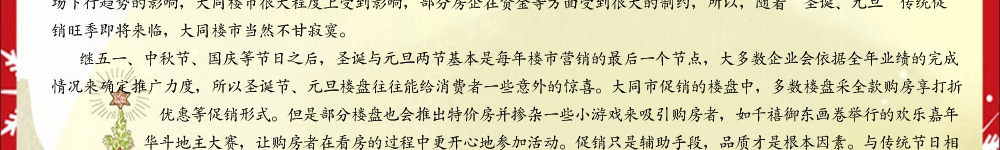 场下行趋势的影响，大同楼市很大程度上受到影响，部分房企在资金等方面受到很大的制约，所以，随着“圣诞、元旦”传统促
销旺季即将来临，大同楼市当然不甘寂寞。
继五一、中秋节、国庆等节日之后，圣诞与元旦两节基本是每年楼市营销的最后一个节点，大多数企业会依据全年业绩的完成
情况来确定推广力度，所以圣诞节、元旦楼盘往往能给消费者一些意外的惊喜。大同市促销的楼盘中，多数楼盘采全款购房享打折
优惠等促销形式。但是部分楼盘也会推出特价房并掺杂一些小游戏来吸引购房者，如千禧御东画卷举行的欢乐嘉年
华斗地主大赛，让购房者在看房的过程中更开心地参加活动。促销只是辅助手段，品质才是根本因素。与传统节日相